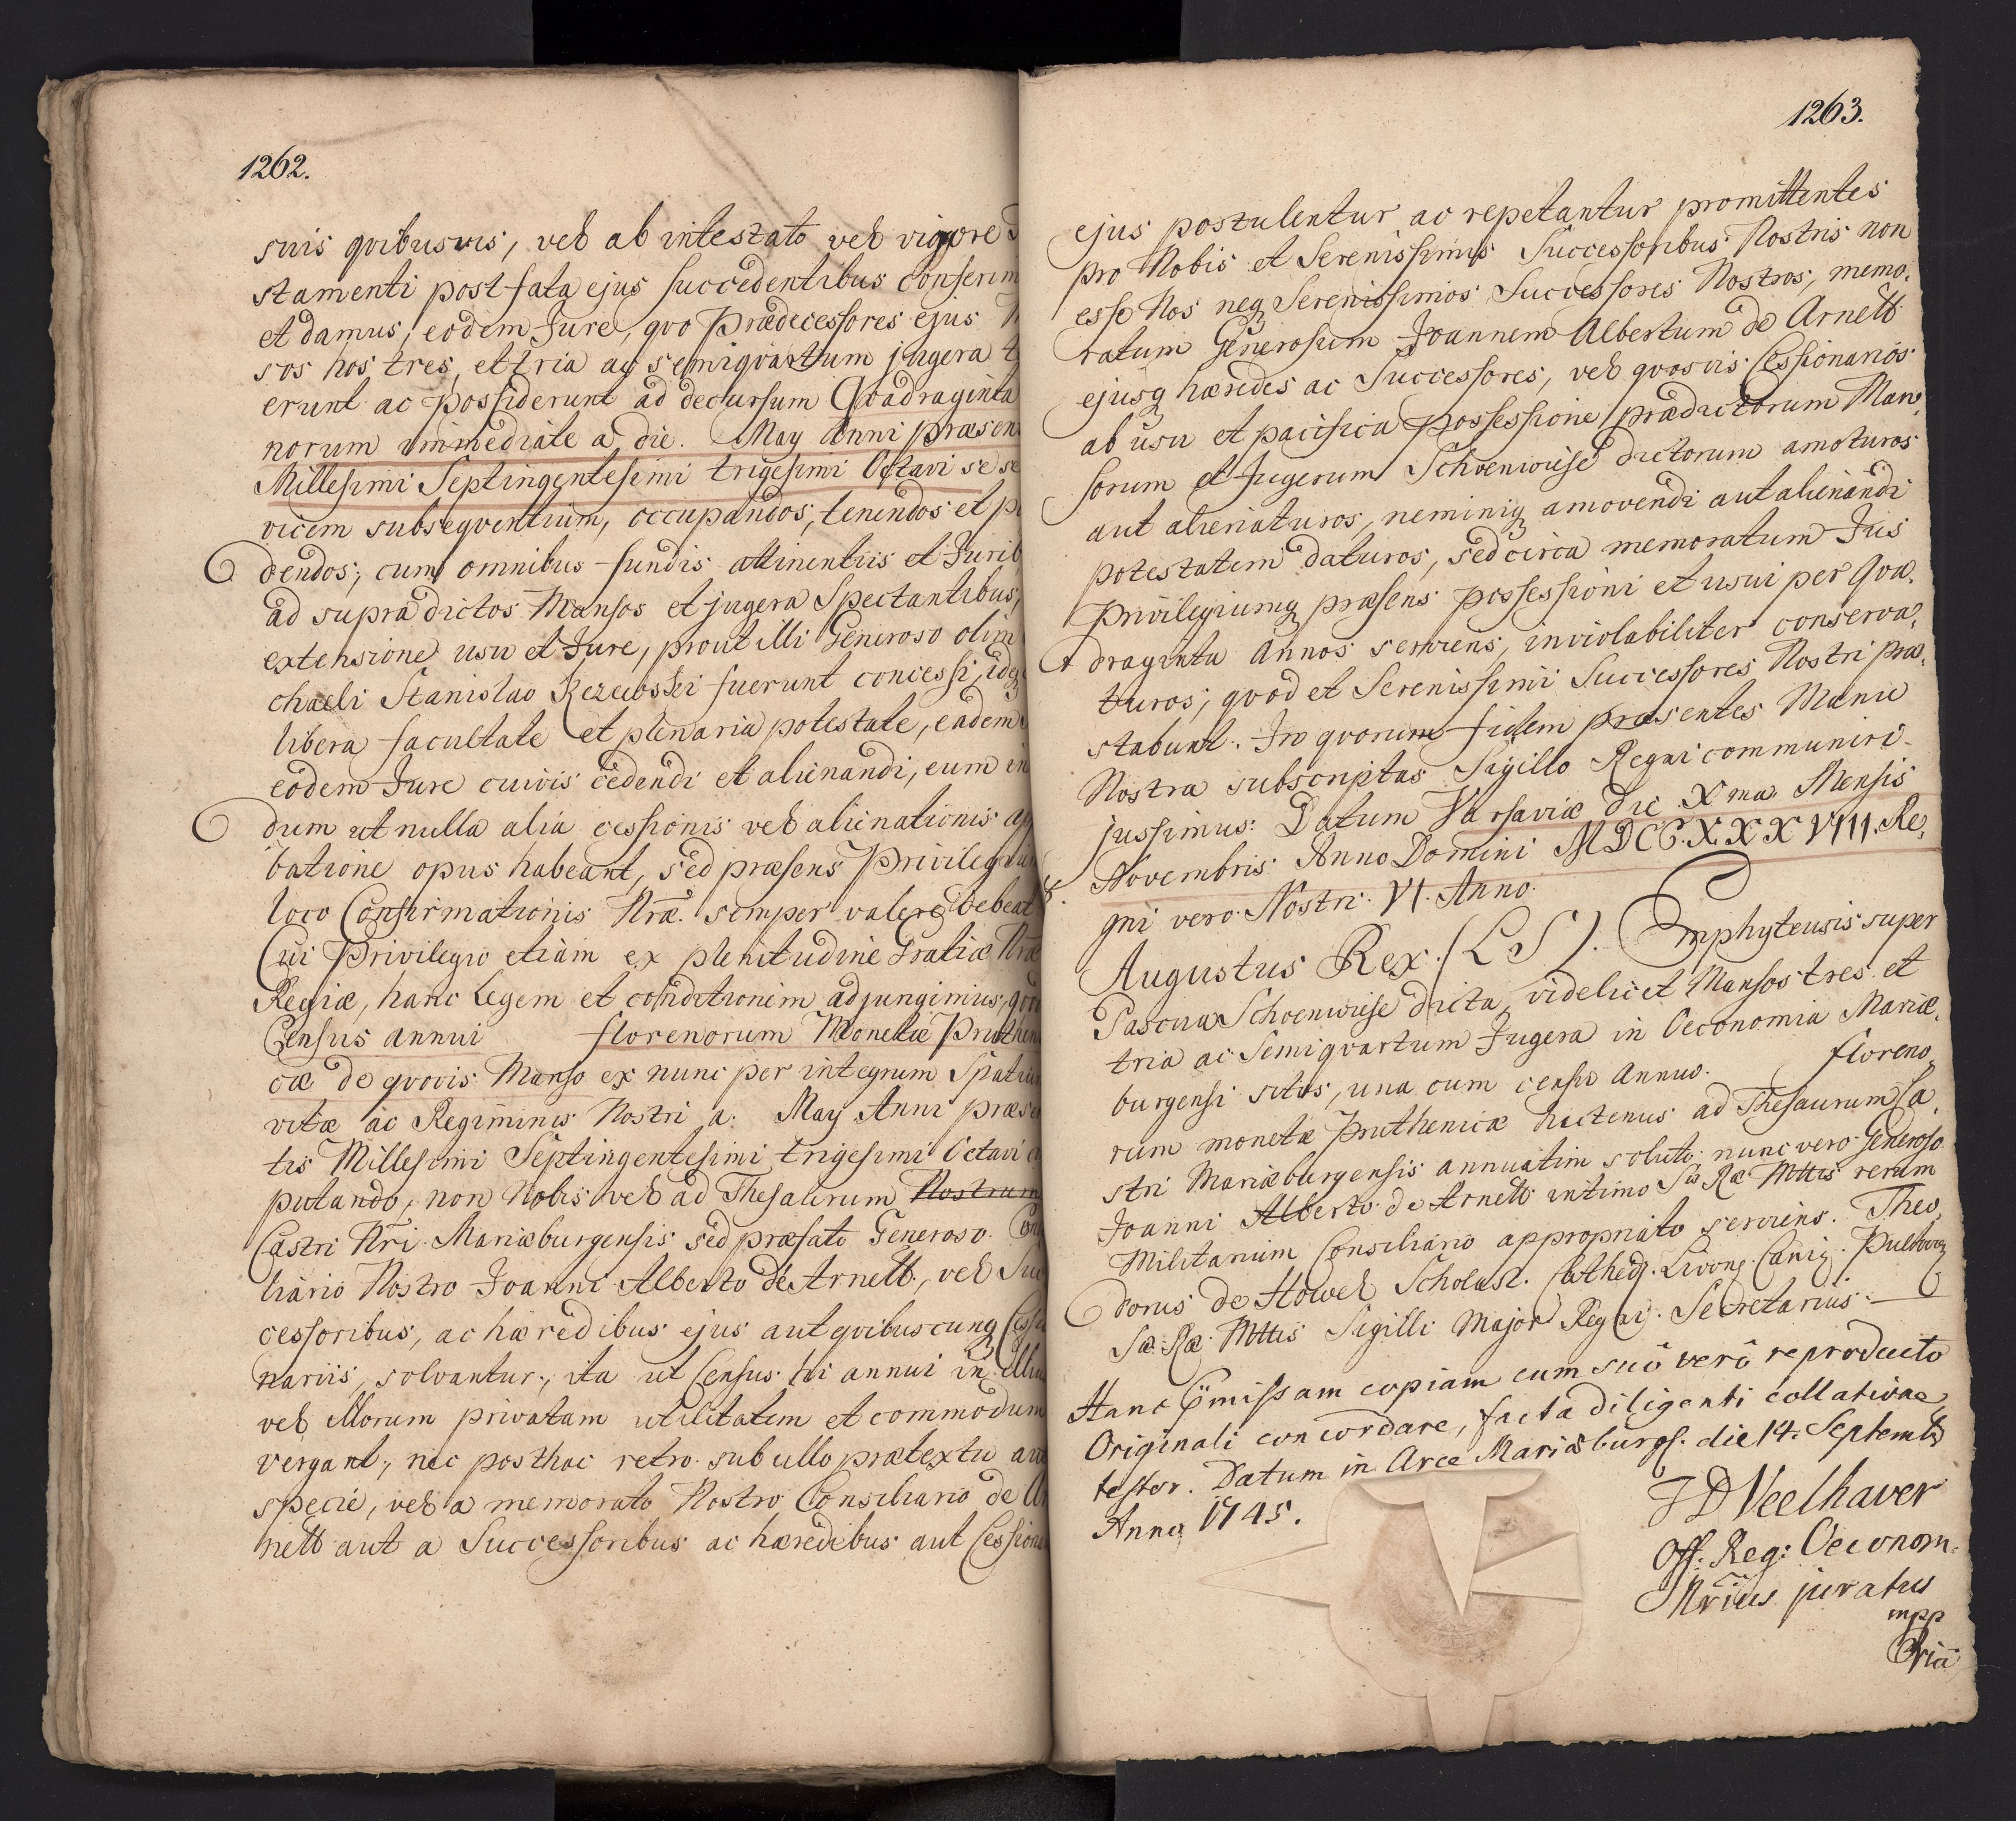 1262.
suis qvibusvis, vel ab intestato vel vigore
stamenti post fata ejus succedentibus conferim
et damus, eodem Jure, qvo Prædecessores ejus
sos hos tres, et tria ac semiqvartum jugera
erunt ac possiderunt ad decursum Qvadraginta
norum immediate a die. May Anni præsen
Millesimi Septingentesimi trigesimi Octavi se se
vicem subseqventium, occupandos, tenendos et p
dendos; cum omnibus fundis attinentiis et Jurib
ad supra dictos Mansos et jugera Spectantibus,
extensione usu et Jure, prout illi Generoso olim
chaeli Stanislao Rezewski fuerunt concessi, idq
libera facultate et plenaria potestate, eadem
eodem Jure cuivis cedendi et alienandi, eum in
dum ut nulla alia cessionis vel alienationis ap
batione opus habeant, sed præsens Privilegiu
loco Confirmationis Nræ. semper valere debeat
Cui Privilegio etiam ex plenitudine Gratiæ Nræ
Regiæ, hanc Legem et conditionem adjungimus, qvo
Census annui florenorum Monetæ Pruthen
cæ de qvovis Manso ex nunc per integrum Spatiu
vitæ ac Regiminis Nostri a. May Anni præse
tis Millesimi Septingentesimi trigesimi Octavi
putando, non Nobis vel ad Thesaurum Nostrum
Castri Nri. Mariæburgensis sed præfato Generoso. Con
liario Nostro Joanni Alberto de Arnett, vel Suc
cessoribus, ac hæredibus ejus aut qvibuscunq Cessio
nariis, solvantur, ita ut Census hi annui in illiu
vel illorum privatam utilitatem et commodum
vergant, nec posthac retro sub ullo prætextu au
specie, vel a memorato Nostro Consiliario de Ar
nett aut a Successoribus ac hæredibus aut Cessiona
1263.
ejus postulentur ac repetantur promittentes
pro Nobis et Serenissimis Successoribus Nostris non
esse Nos neq Serenissimos Successores Nostros, memo,
ratum Generosum Joannem Albertum de Arnett
ejusq hæredes ac Successores, vel qvosvis Cessionarios
ab usu et pacifica possessione prædictorum Man,
sorum et Jugerum Schoenwiese dictorum amoturos
aut alienaturos, neminiq amovendi aut alienandi
potestatem daturos, sed circa memoratum Jus
Privilegiumq præsens possessioni et usui per Qva,
draginta Annos serviens, inviolabiliter conserva,
turos, qvod et Serenissimi Successores Nostri præ,
stabunt. In qvorum fidem præsentes Manu
Nostra subscriptas Sigillo Regni communiri
jussimus. Datum Varsaviæ die Xma. Mensis
Novembris Anno Domini MDCC.XXXVIII. Re,
gni vero Nostri. VI. Anno.
Augustus Rex. (LS). Emphyteusis super
Pascua Schoenwiese dicta, videlicet Mansos tres et
tria ac Semiqvartum Jugera in Oeconomia Mariæ,
burgensi sitos, una cum censu annuo. floreno,
rum monetæ Pruthenicæ hactenus ad Thesaurum Ca,
stri Mariæburgensis annuatim soluto, nunc vero Generoso
Joanni Alberto de Arnett intimo Sæ Ræ Mttis rerum
Militarium Consiliario appropriato serviens. Theo,
dorus de Howel Scholast. Cathedr. Livonę. Caniq. Pultoviq
Sæ. Ræ. Mttis Sigilli Major Regni. Secretarius.
Hanc pmissam copiam cum suô verô reproducto
Originali concordare, facta diligenti collatione,
testor. Datum in Arce Mariæburgs. die 14. Septembr
Anno 1745.
JD Veelhaver
Off: Reg: Oeconom.
Nrius juratus
mpp